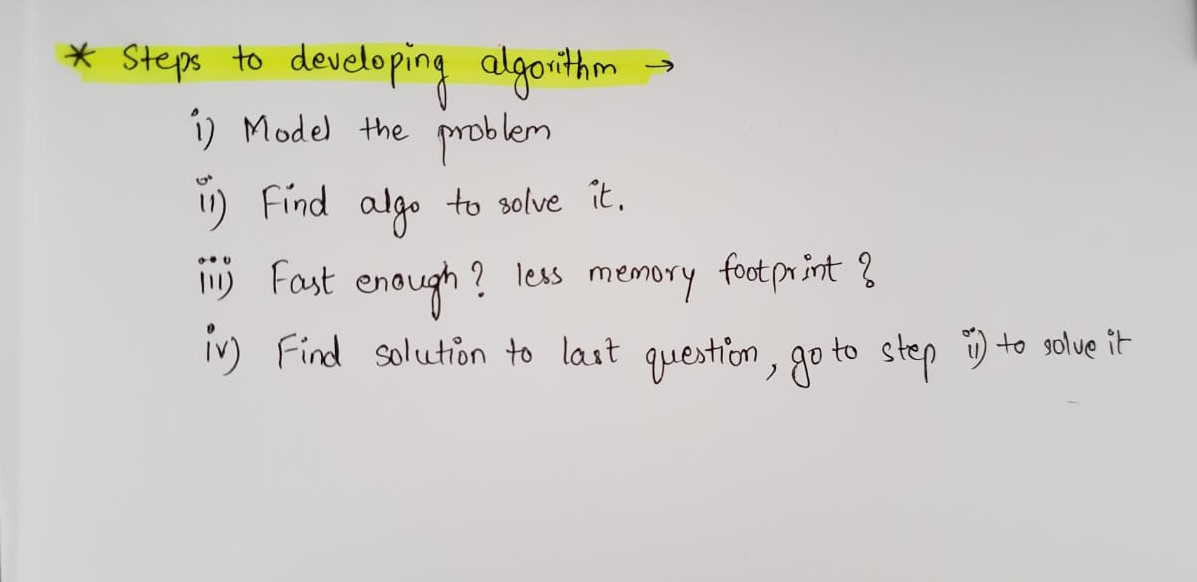 * Steps to developing algorithm →
i) Model the problem
ii) Find algo to solve it.
iii) Fast enough? less memory footprint?
iv) Find solution to last question, go to step ii) to solve it